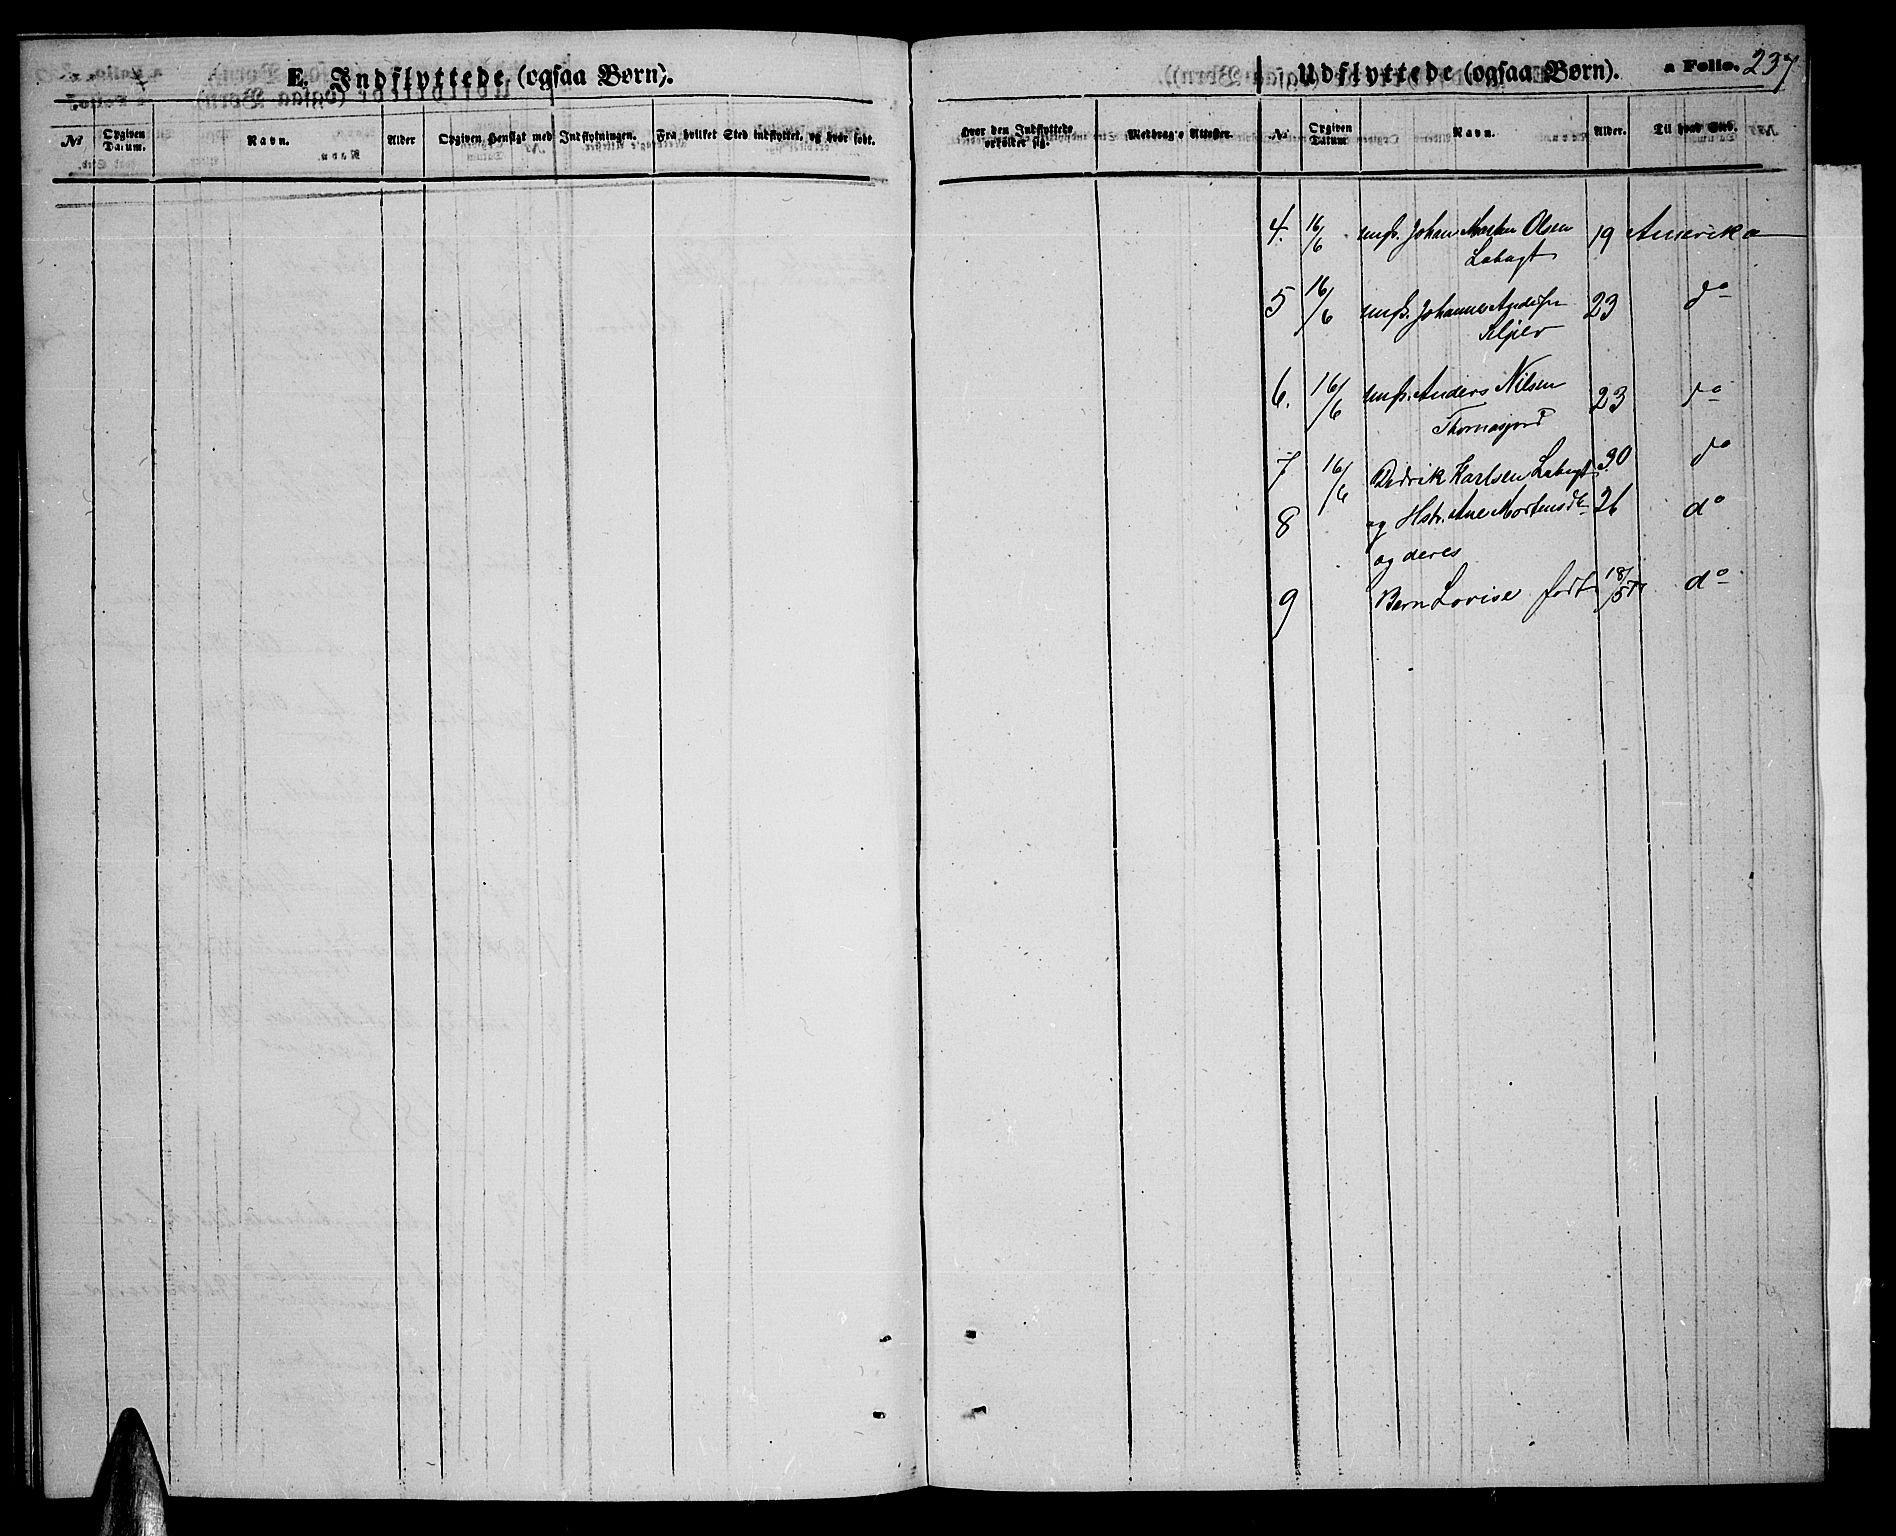 E. Indflyttede (ogsaa Børn).
Udflyttede (ogsaa Børn). a Folio. 237
No Opgiven Datum. Navn. Alder Opgiven Hensigt med Indflytningen. Fra hvilket Sted indflyttet, og hvor født.
Hvor den Indflyttede opholder sig. Meddrag's Attester. No Opgiven Datum Navn. Alder. Til hvad Sted.
4. 16/6 ungk. Johan Morten Olsen 19 Amerika
Labugt
5 16/6 ungk. Johannes 23 do
6. 16/6 ungk. Anders Nilsen 23 do
Thomasjord
7 16/6 Didrik Karlsen Labugt 30 do
8 og Hstr. Ane Mortensdt 26 do
og deres
9 Barn Lovise født 18/5 do